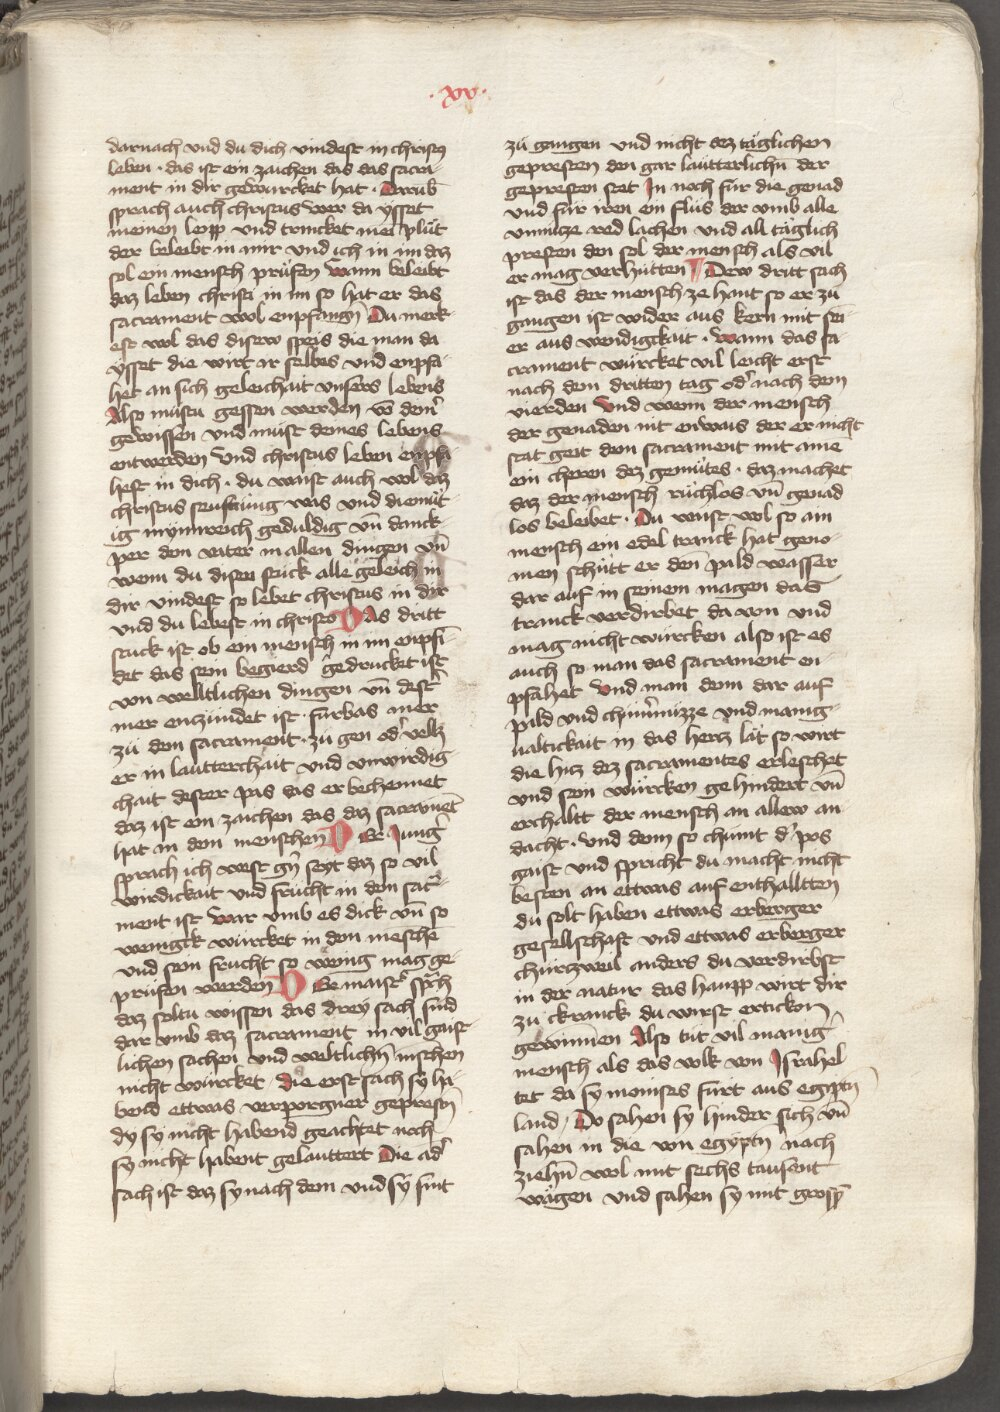 · xv ·
darnach vnd du dich vindest in christus
leben · das ist ein zaichen das das sacra
ment in dir gewurcket hat · Darub̄
sprach auch christus wer da ysset
meinen leipp vnd trincket mei plůt
der beleibt in mir vnd ich in im daz
sol ein mensch prüfen Wann beleibt
daz leben christi in im so hat er das
sacrament wol enpfangn̄ Du merk
est wol das disew speis die man da
ysset die wirt ir selbes vnd enpfa
het an sich geleichait vnsers lebens
Also mustu gessen werden vō dem̄
gewissen vnd must deines lebens
entwerden Vnd christus leben enpfa
hest in dich · du waist auch wol daz
christus senftmütig was vnd diemüt
ig mynnreich geduldig vn̄ danck
per dem vater in allen dingen vn̄
wenn du disen stuck alle geleich in
dir vindest so lebet christus in dir
vnd du lebest in christo DAs dritt
stuck ist ob ein mensch in im enpfi
det das sein begierd gedrucket ist
von welltlichen dingen vn̄ dest
mer enzündet ist · fürbas mer
zü dem sacrament · zü gen od' velh
er in lautterchait vnd vnwirdig
chait dester pas das er bechennet
daz ist ein zaichen das daz sacramēt
hat in dem menschen DEr Jung'
sprach ich west gn̄ seyt daz so vil
wirdickait vnd frucht in dem sacr̄
ment ist War vmb es dick vn̄ so
wenigk würcket in den mēschē
vnd sein frucht so wenig mag ge
prüfen werden DEr maist' sprch
daz soltu wissen das drey sach sind
dar vmb daz sacrament in vil gaist
lichen sachen vnd weltlichn̄ mēschen
nicht würcket Die erst sach sy ha
bend ettwas verporgner geprestn̄
dy sy nicht habend geachtet noch
sy nicht habent gelauttert Die ad'
sach ist daz sy nach dem vnd sy sint
zü gangen vnd nicht dez täglichen
gepresten den gar lautterlichn̄ der
gepresten stet In noch für die genad
vnd für iren ein flüs der vmb alle
vnnucze red lachen vnd all täglich
presten den sol der mensch als vil
er mag verhütten ¶ Dew dritt sach
ist das der mensch ze hant so er zü
gangen ist wider aus kern mit sei
er aus wendigckait · Wann das sa
crament würcket vil leicht erst
nach dem dritten tag od' nach dem
vierden Vnd wenn der mensch
der genaden nit enwais der er nicht
stat geit dem sacrament mit aine
ein cheren dez gemütes · daz machet
daz der mensch rüchlos vn̄ genad
los beleibet · Du weist wol so ain
mensch ein edel tranck hat geno
men schütt er den̄ pald wasser
dar auf in seinem magen das
tranck verdirbet da von vnd
mag nicht würcken also ist es
auch so man das sacrament en
pfahet Vnd man denn dar auf
pild vnd chüm̄mizze vnd manig
ualtickait in das hercz lät so wirt
die hicz dez sacramentes erleschet
vnd sein würcken gehindert vn̄
erchaltt der mensch an allew an
dacht · Vnd denn so chümt d' pös
gaist vnd spricht du macht nicht
besten an ettwas auf enthalltten
du solt haben ettwas erberger
gesellschaft vnd ettwas erberger
churczweil anders du verdirbst
in der natur das haupp wirt dir
zü ckranck du wirst ertickon
gewinnen Also tüt vil manig
mensch als das volk von Israhel
tet da sy moinises fürt aus egiptn̄
land / Do sahen sy hinder sich vn̄
sahen in die von egyptn̄ nach
ziehn̄ wol mit sechs tausent
wägen vnd sahen sy mit gross